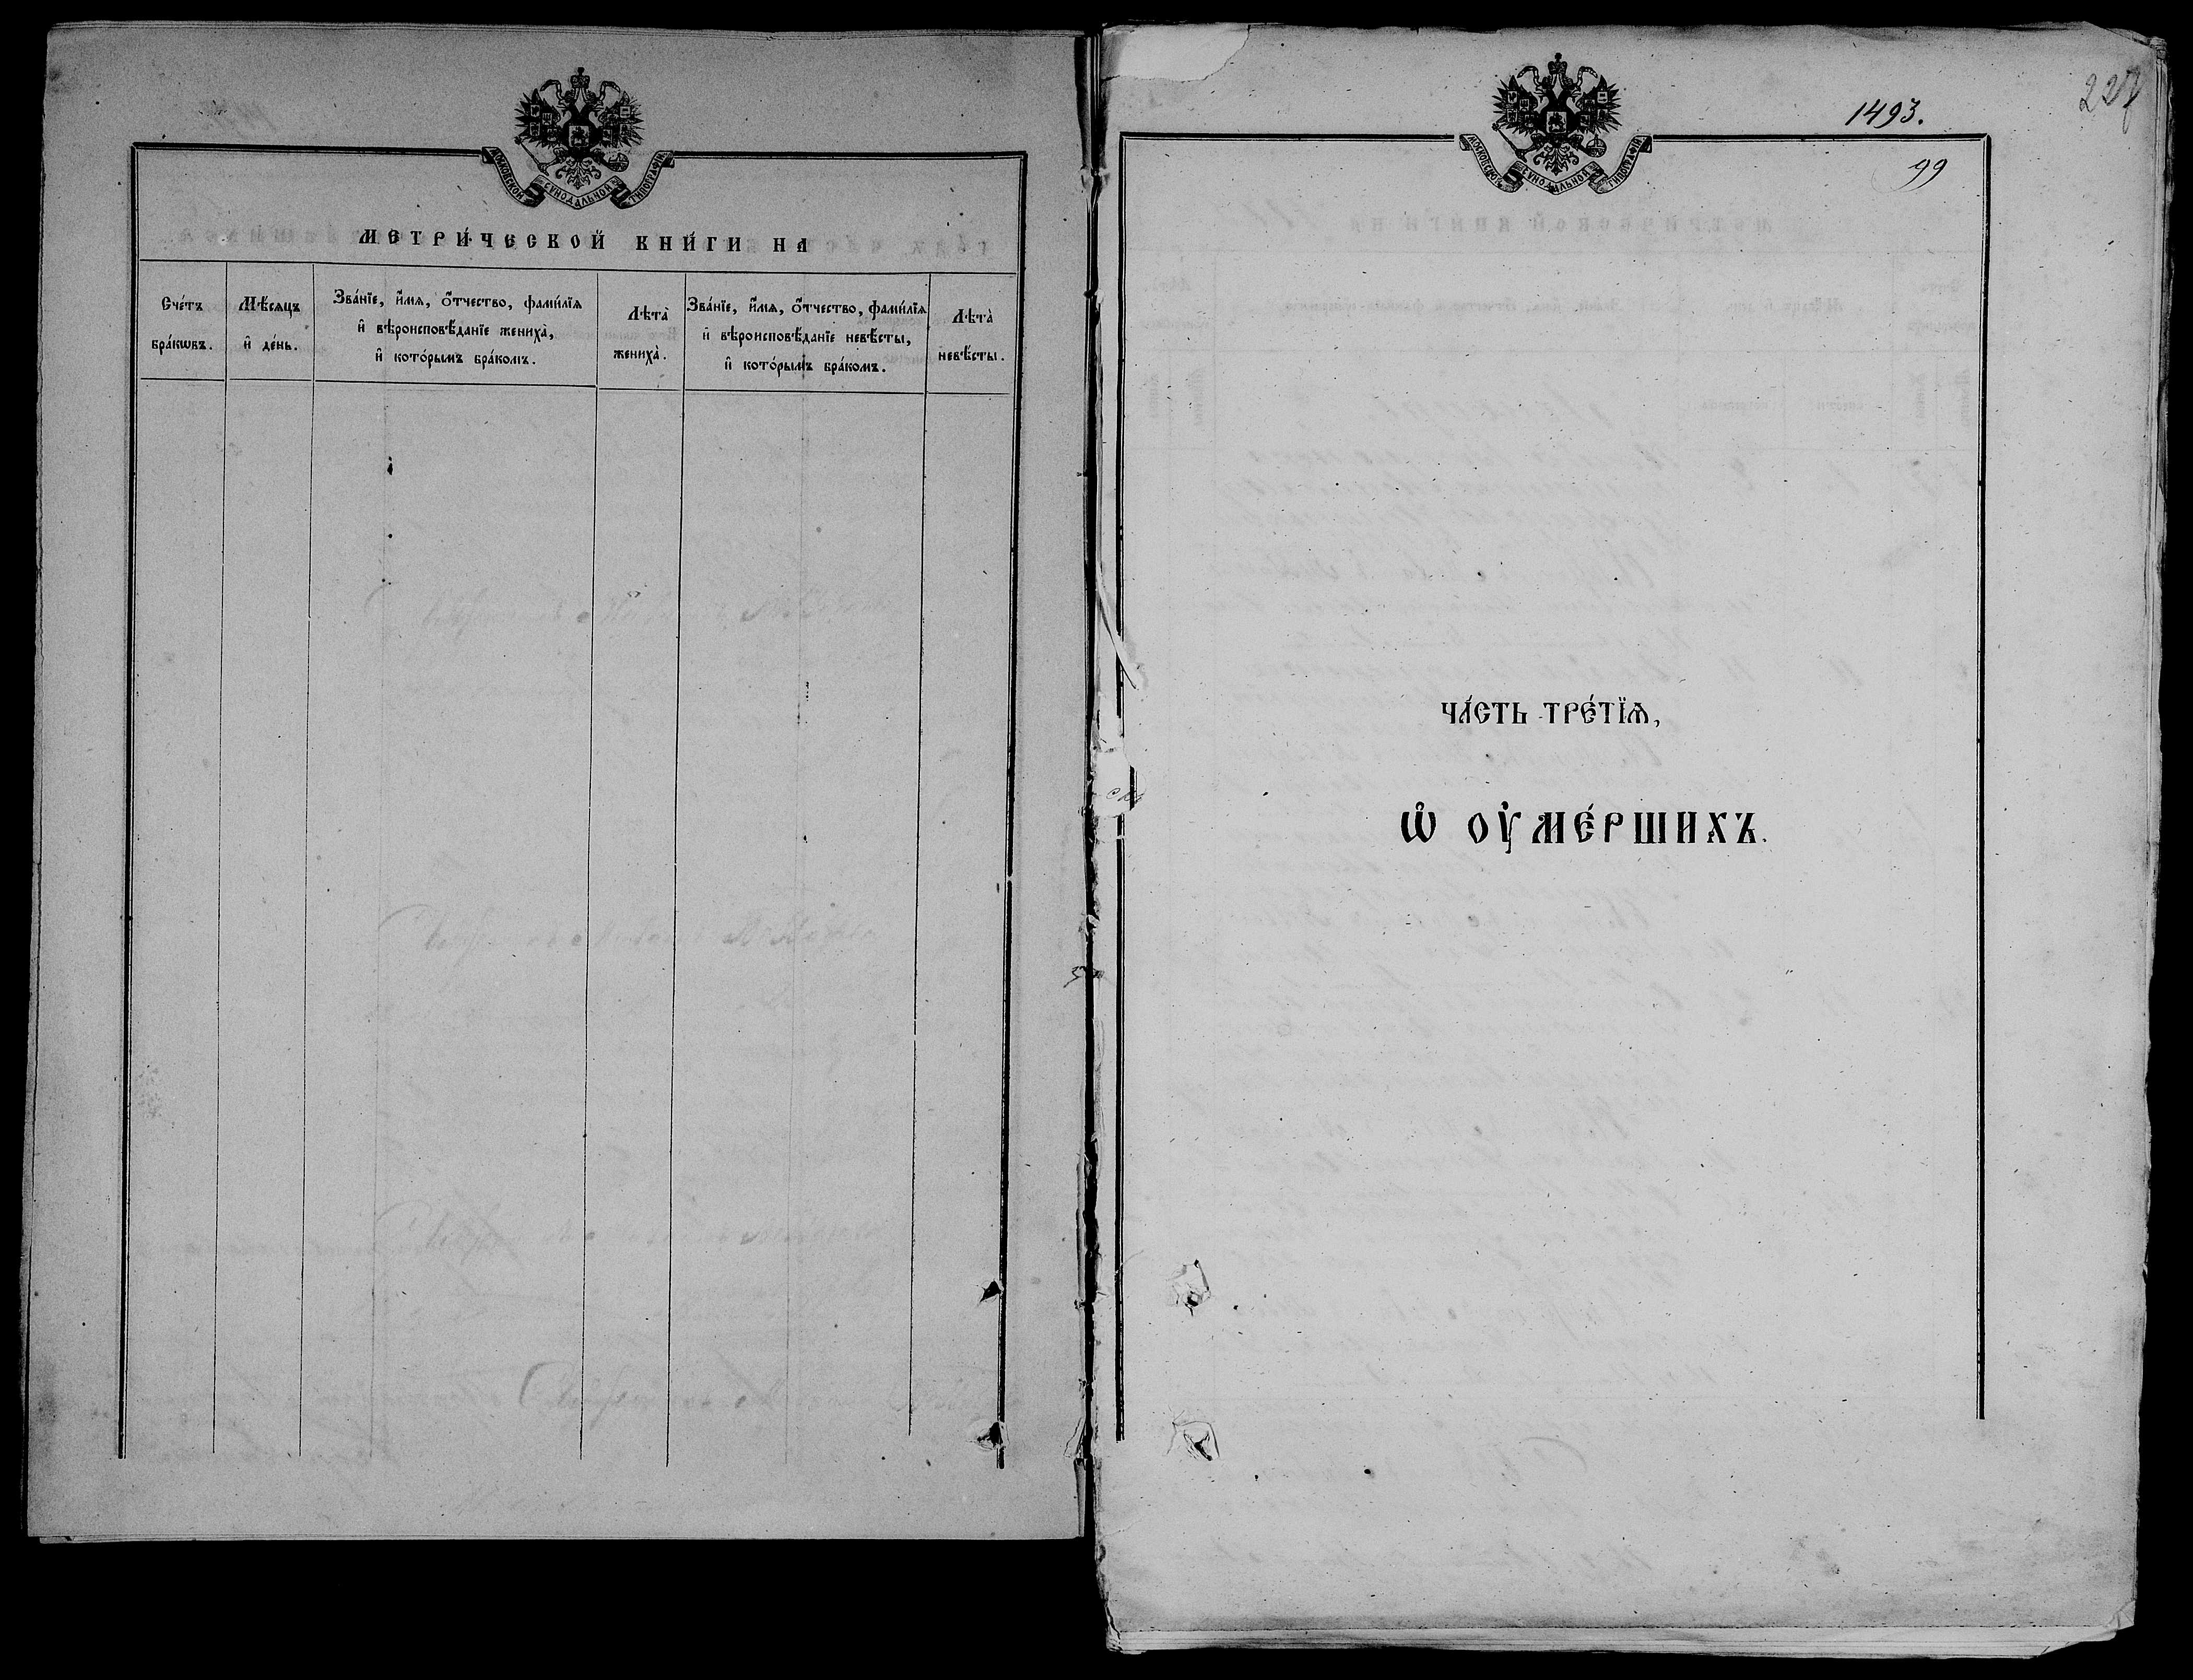 МОСКОВСКОЙ СѴНОДАЛЬНОЙ ТИПОГРАФІИ
МЕТРИ́ЧЕСКОЙ КНИ́ГИ НА
Сче́тъ
бра́кѡвъ.
Мѣ́сяцъ
и҆ де́нь.
Зва́нїе, и҆́мѧ, ѻ҆́тчество, фами́лїѧ
и҆ вѣроисповѣ́данїе жениха̀,
и҆ кото́рымъ бра́комъ.
Лѣта̀
жениха̀.
Зва́нїе, и҆́мѧ, ѻ҆́тчество, фами́лїѧ
и҆ вѣроисповѣ́данїе невѣ́сты,
и҆ кото́рымъ бра́комъ.
Лѣта̀
невѣ́сты.
227
1493.
99
МОСКОВСКОЙ СѴНОДАЛЬНОЙ ТИПОГРАФІИ
ЧА́СТЬ ТРЕ́ТЇѦ,
Ѡ҆ ОУ҆МЕ́РШИХЪ.